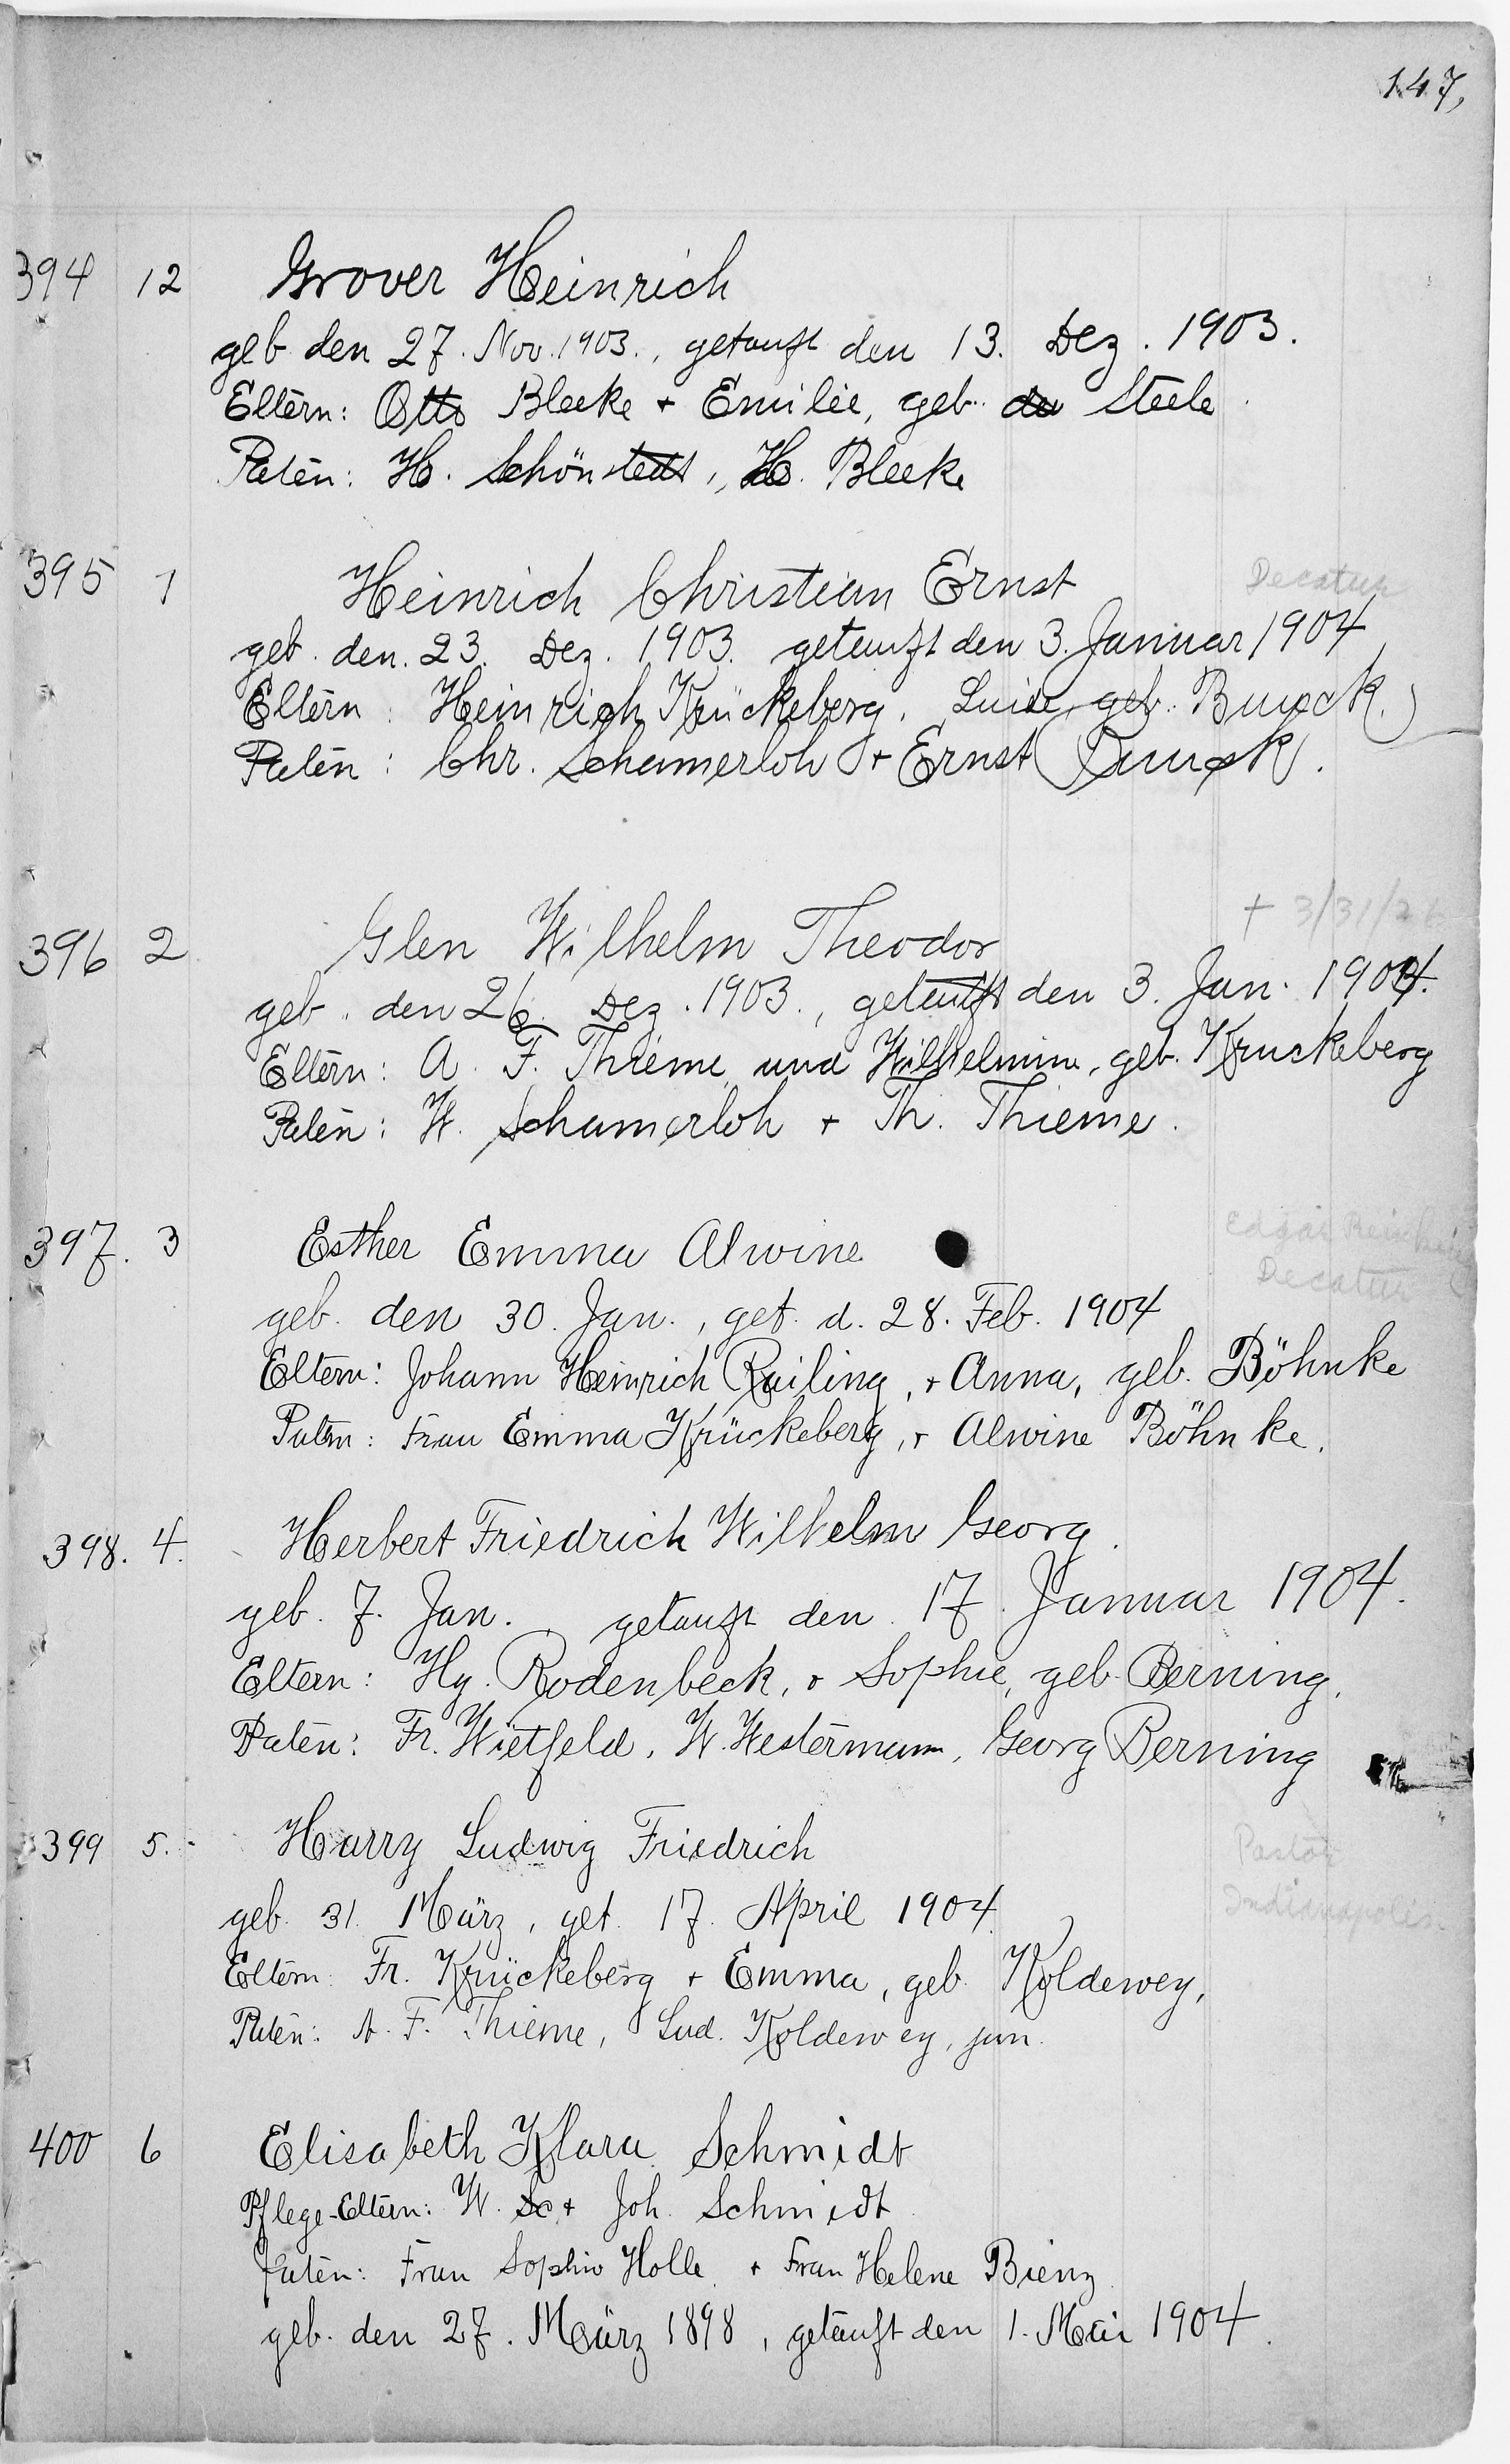 147,
394 12 Grover Heinrich
geb den 27. Nov. 1903., getauft den 13. Dez. 1903.
Eltern: Otto Bleeke + Emilie, geb. Steele
Paten: H. Schönstedt, H. Bleeke
395 1 Heinrich Christian Ernst
Decatur
geb. den. 23. Dez. 1903. getauft den 3. Januar 1904
Eltern: Heinrich Krückeberg, Luise, geb. Buuck.
Paten: Chr. Schamerloh + Ernst Buuck.
+ 3/31/26
396 2 Glen Wilhelm Theodor
geb. den 26. Dez. 1903., getauft den 3. Jan. 1904.
Eltern: A. F. Thieme und Wilhelmine, geb. Kruckeberg
Paten: W. Schamerloh + Th. Thieme.
397. 3 Esther Emma Alwine
Edgar
Decatur
geb. den 30. Jan., get. d. 28. Feb. 1904
Eltern: Johann Heinrich Railing, + Anna, geb. Böhnke
Paten: Frau Emma Krückeberg, + Alwine Böhnke.
398. 4. Herbert Friedrich Wilhelm Georg.
geb. 7. Jan. getauft den 17. Januar 1904.
Eltern: Hy. Rodenbeck, + Sophie, geb. Berning.
Paten: Fr. Wietfeld, W. Westermann, Georg Berning
399 5. Harry Ludwig Friedrich
Pastor
Indianapolis.
geb. 31. März, get. 17. April 1904.
Eltern: Fr. Krückeberg + Emma, geb. Koldewey,
Paten: A. F. Thieme, Lud. Koldewey, jun.
400 6 Elisabeth Klara Schmidt
Pflege-Eltern: W. Sc + Joh. Schmidt
Paten: Frau Sophie Holle + Frau Helene Bienz
geb. den 27. März 1898, getauft den 1. Mai 1904.